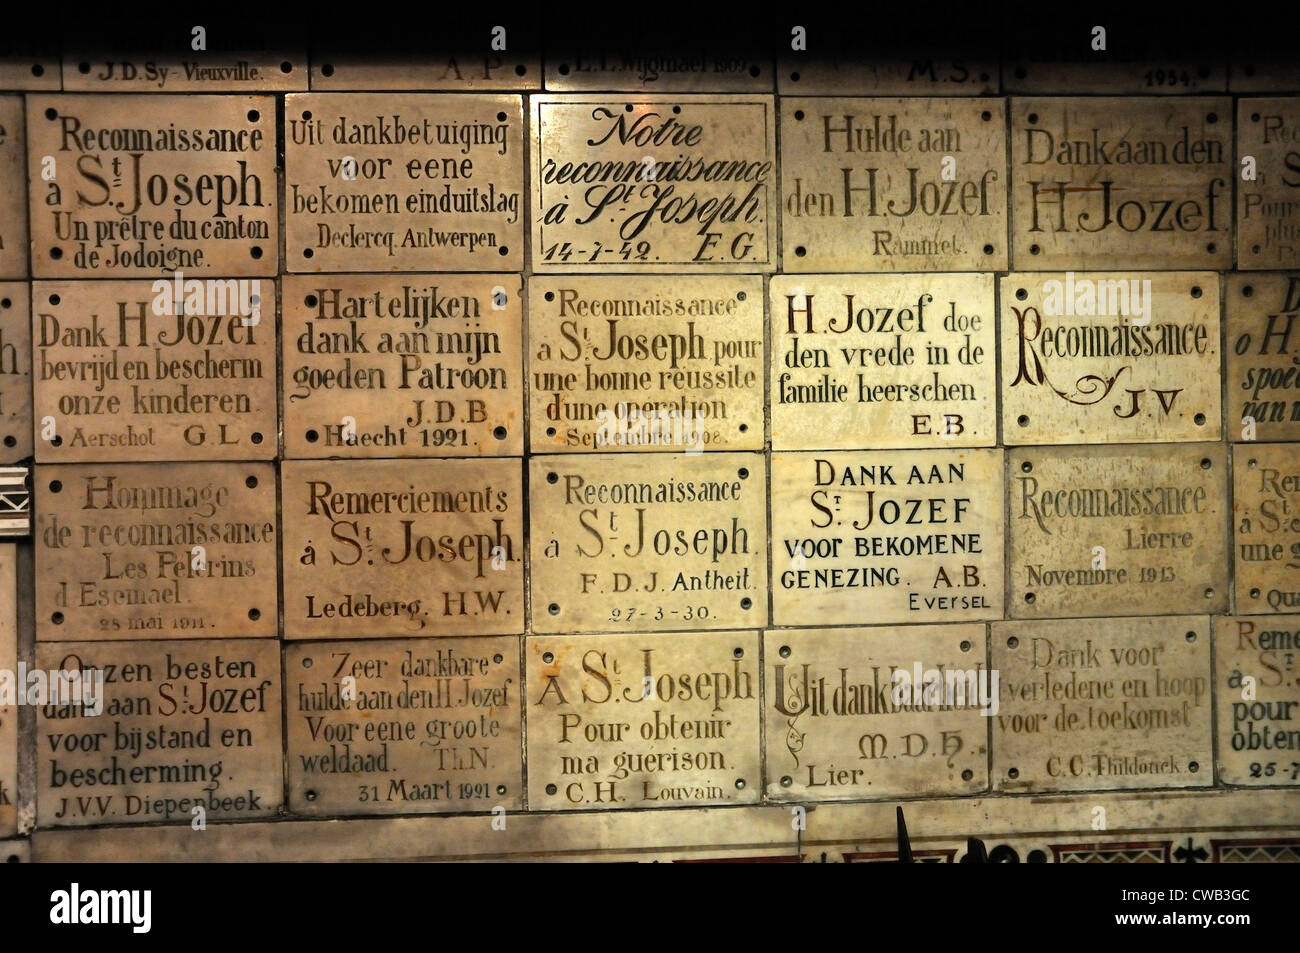 J.D. Sy-Vieuxville.
A.P
L.L. Wijgmael 1909.
M.S.
1954.
Reconnaissance
à St. Joseph.
Un prêtre du canton
de Jodoigne.
Uit dankbetuiging
voor eene
bekomen einduitslag
Declercq. Antwerpen.
Notre
reconnaissance
à St. Joseph.
14-7-42. E.G.
Hulde aan
den H. Jozef.
Rammet.
Dank aan den
H. Jozef.
Dank H. Jozef.
bevrijd en bescherm
onze kinderen.
Aerschot G.L.
Hartelijken
dank aan mijn
goeden Patroon
J.D.B
Haecht 1921.
Reconnaissance
à St. Joseph pour
une bonne réussite
d'une opération
Septembre 1908.
H. Jozef doe
den vrede in de
familie heerschen.
E.B.
Reconnaissance.
J.V.
Hommage
de reconnaissance
Les Pélerins
d'Esemael.
28 mai 1911.
Remerciements
à St. Joseph.
Ledeberg. H.W.
Reconnaissance
à St. Joseph.
F.D.J. Antheit.
27-3-30.
Dank aan
St. Jozef
voor bekomene
genezing. A.B.
Eversel
Reconnaissance.
Lierre
Novembre 1913
Onzen besten
dank aan St. Jozef
voor bijstand en
bescherming.
J.V.V. Diepenbeek.
Zeer dankbare
hulde aan den H. Jozef
Voor eene groote
weldaad. Th.N.
31 Maart 1921.
A St. Joseph
Pour obtenir
ma guérison.
C.H. Louvain.
Uit dankbaarheid.
M.D.H.
Lier.
Dank voor
verledene en hoop
voor de toekomst
C.C. Thildonck.
pour
obten
25-7
alamy
Image ID: CWB3GC
www.alamy.com